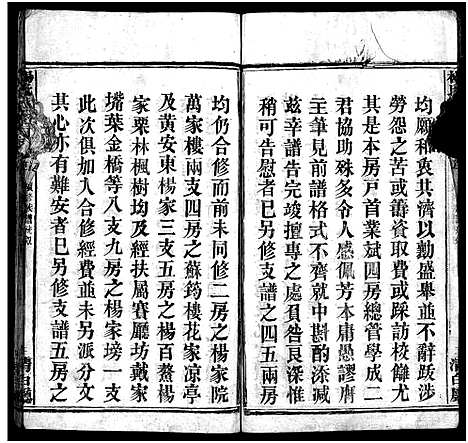 均願和衷共濟以勷盛舉並不辭跋涉
勞怨之苦或籌資取費或踩訪校讎尤
其是以本房戸首業斌四房總管學成二
君協助殊多令人感佩芳本庸愚謬膺
主筆見前譜格式不齊就中斟酌添減
玆幸譜告完竣擅專之處負咎良深而
稍可告慰者已另修支譜之四五兩房
均仍合修而前未同修二房之楊家院
萬家樓兩支四房之蘇筠樓花家凉亭
及黄安東楊家三支五房之楊百鰲楊
家栗林楓樹均及經扶屬賽廳坊戴家
壪葉金橋等八支九房之楊家塝一支
此次俱加入合修經費並未另派分文
其心亦有難安者巳另修支譜五房之
清白